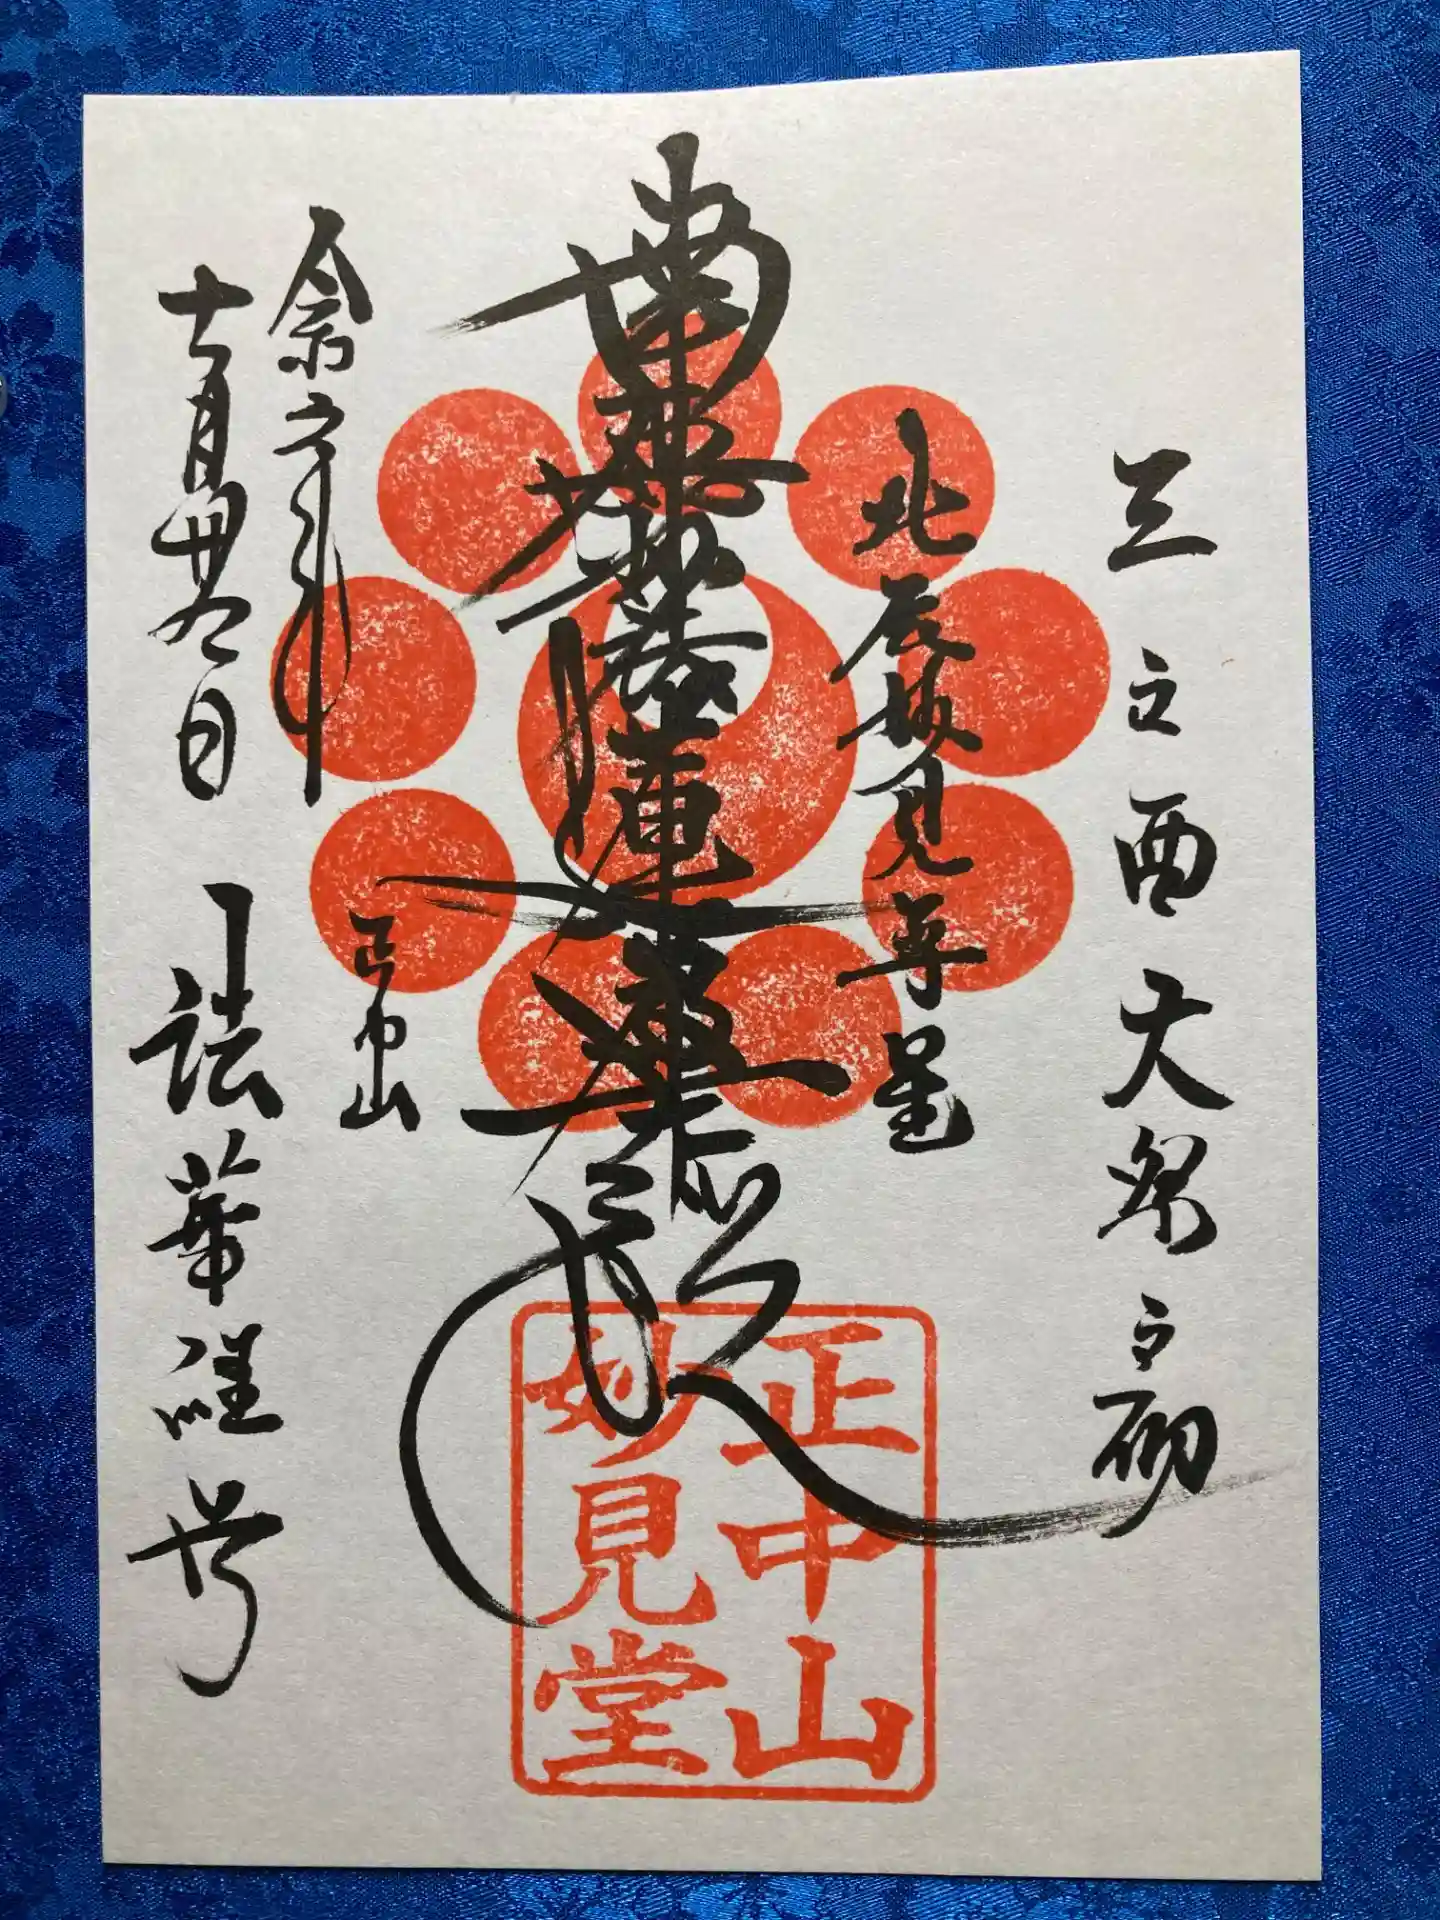 三之酉大祭之砌
北辰妙見尊星
南無妙法蓮華経
正中山
妙見堂
令和六年
十一月廿九日
正中山
法華経寺